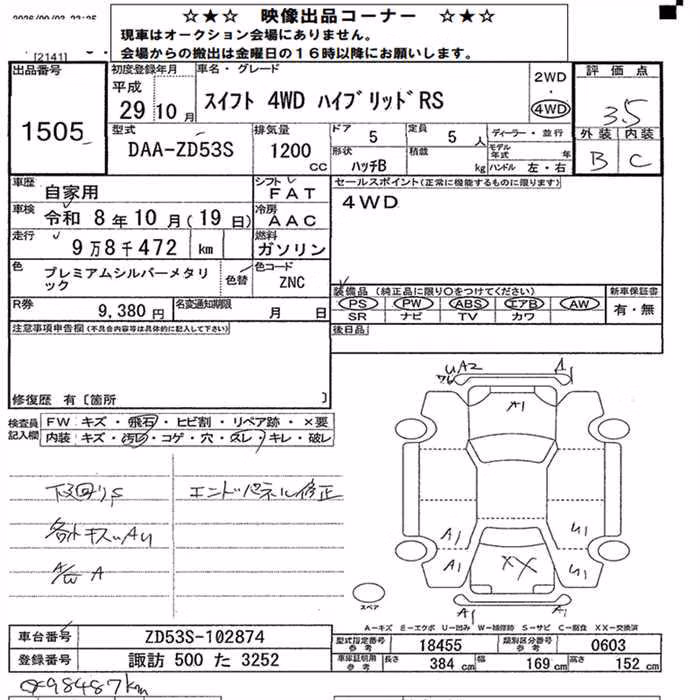 ☆★☆ 映像出品コーナー ☆★☆
現車はオークション会場にありません。
会場からの搬出は金曜日の１６時以降にお願いします。
[2141]
出品番号
1505
初度登録年月
平成
29年10月
車名・グレード
スイフト 4WD ハイブリッドRS
2WD
・
4WD
評価点
3.5
外装 内装
B C
型式
DAA-ZD53S
排気量
1200 CC
ドア 5
定員 5 人
形状 ハッチB
積載 kg
ディーラー・並行
モデル年式 年
ハンドル 左・右
車歴 自家用
シフト FAT
車検 令和 8年10月(19日)
冷房 AAC
走行 9万8千472 km
燃料 ガソリン
色 プレミアムシルバーメタリック
色替
色コード ZNC
R券 9,380円
名変通知期限 月 日
セールスポイント(正常に機能するものに限ります)
4WD
装備品(純正品に限り○をつけてください)
PS PW ABS エアB AW
SR ナビ TV カワ
新車保証書
有・無
後日品
注意事項申告欄(不具合内容等は具体的に記入して下さい)
修復歴 有〔箇所 〕
検査員記入欄
FW キズ・飛石・ヒビ割・リペア跡・×要
内装 キズ・汚れ・コゲ・穴・スレ・キレ・破レ
下廻りS
エンドパネル修正
各トキズ,AU
A/W A
UA2
A1
A1
A1
A1
U1
U1
XX
A1
A1
スペア
A－キズ E－エクボ U－凹み W－補修跡 S－サビ C－腐食 XX－交換済
車台番号 ZD53S-102874
登録番号 諏訪 500 た 3252
型式指定番号 参考 18455
類別区分番号 参考 0603
車庫証明用 参考 長さ 384 cm 幅 169 cm 高さ 152 cm
98487km